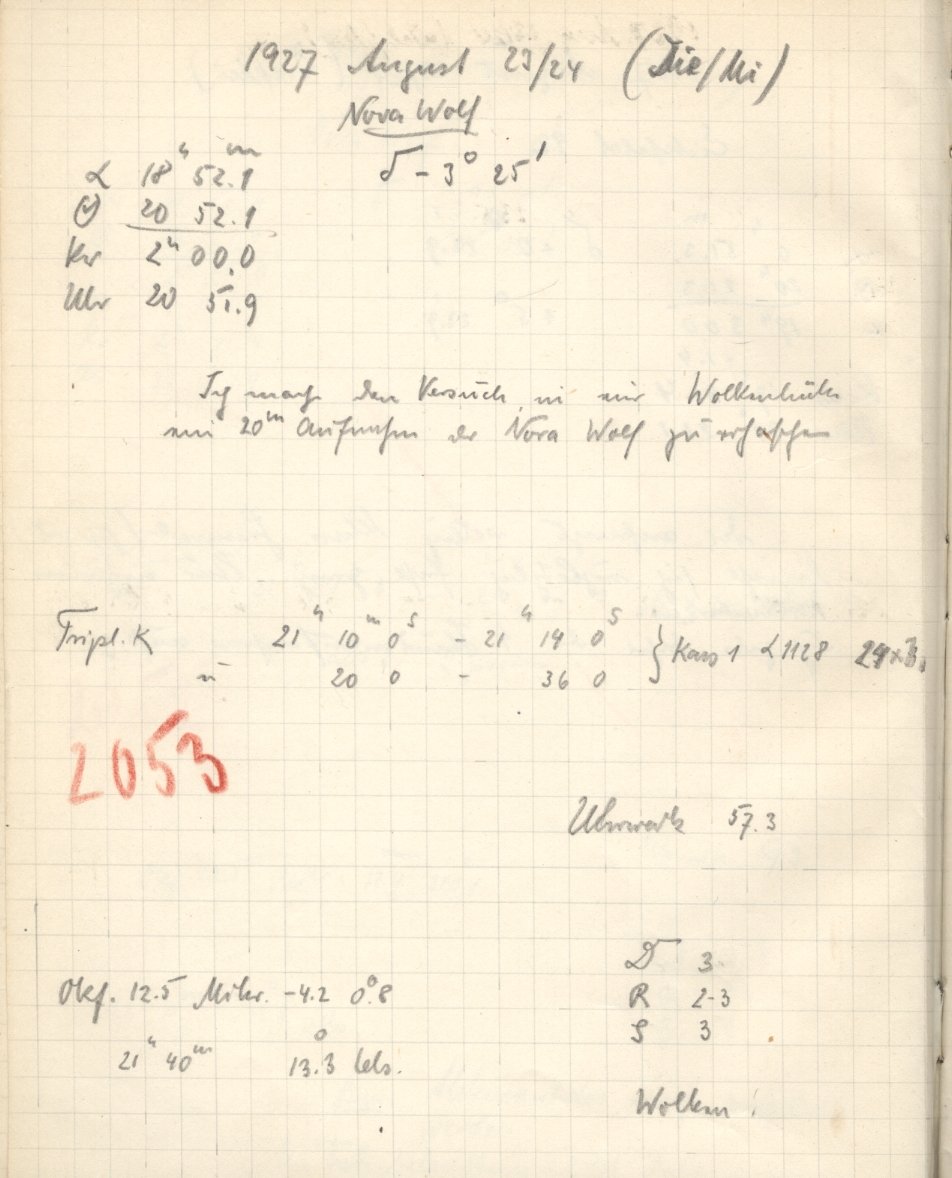 1927 August 23/24 (Die/Mi)
Nova Wolf
α 18h 52m.1 δ - 3° 25'
20 52.1
2h 00.0
Uhr 20 51.9
Ich mache den Versuch, in einer Wolkenlücke
eine 20m Aufnahme der Nova Wolf zu erhaschen
Tripl. K 21h 10m 0s - 21h 19 0s } Kass 1 α 1128
u 20 0 - 36 0
2053
Uhrwerk 57.3
Okf. 12.5 Mikr. -4.2 0°.8
D 3
R 2-3
S 3
21h 40m 13°.3 Cels.
Wolken!